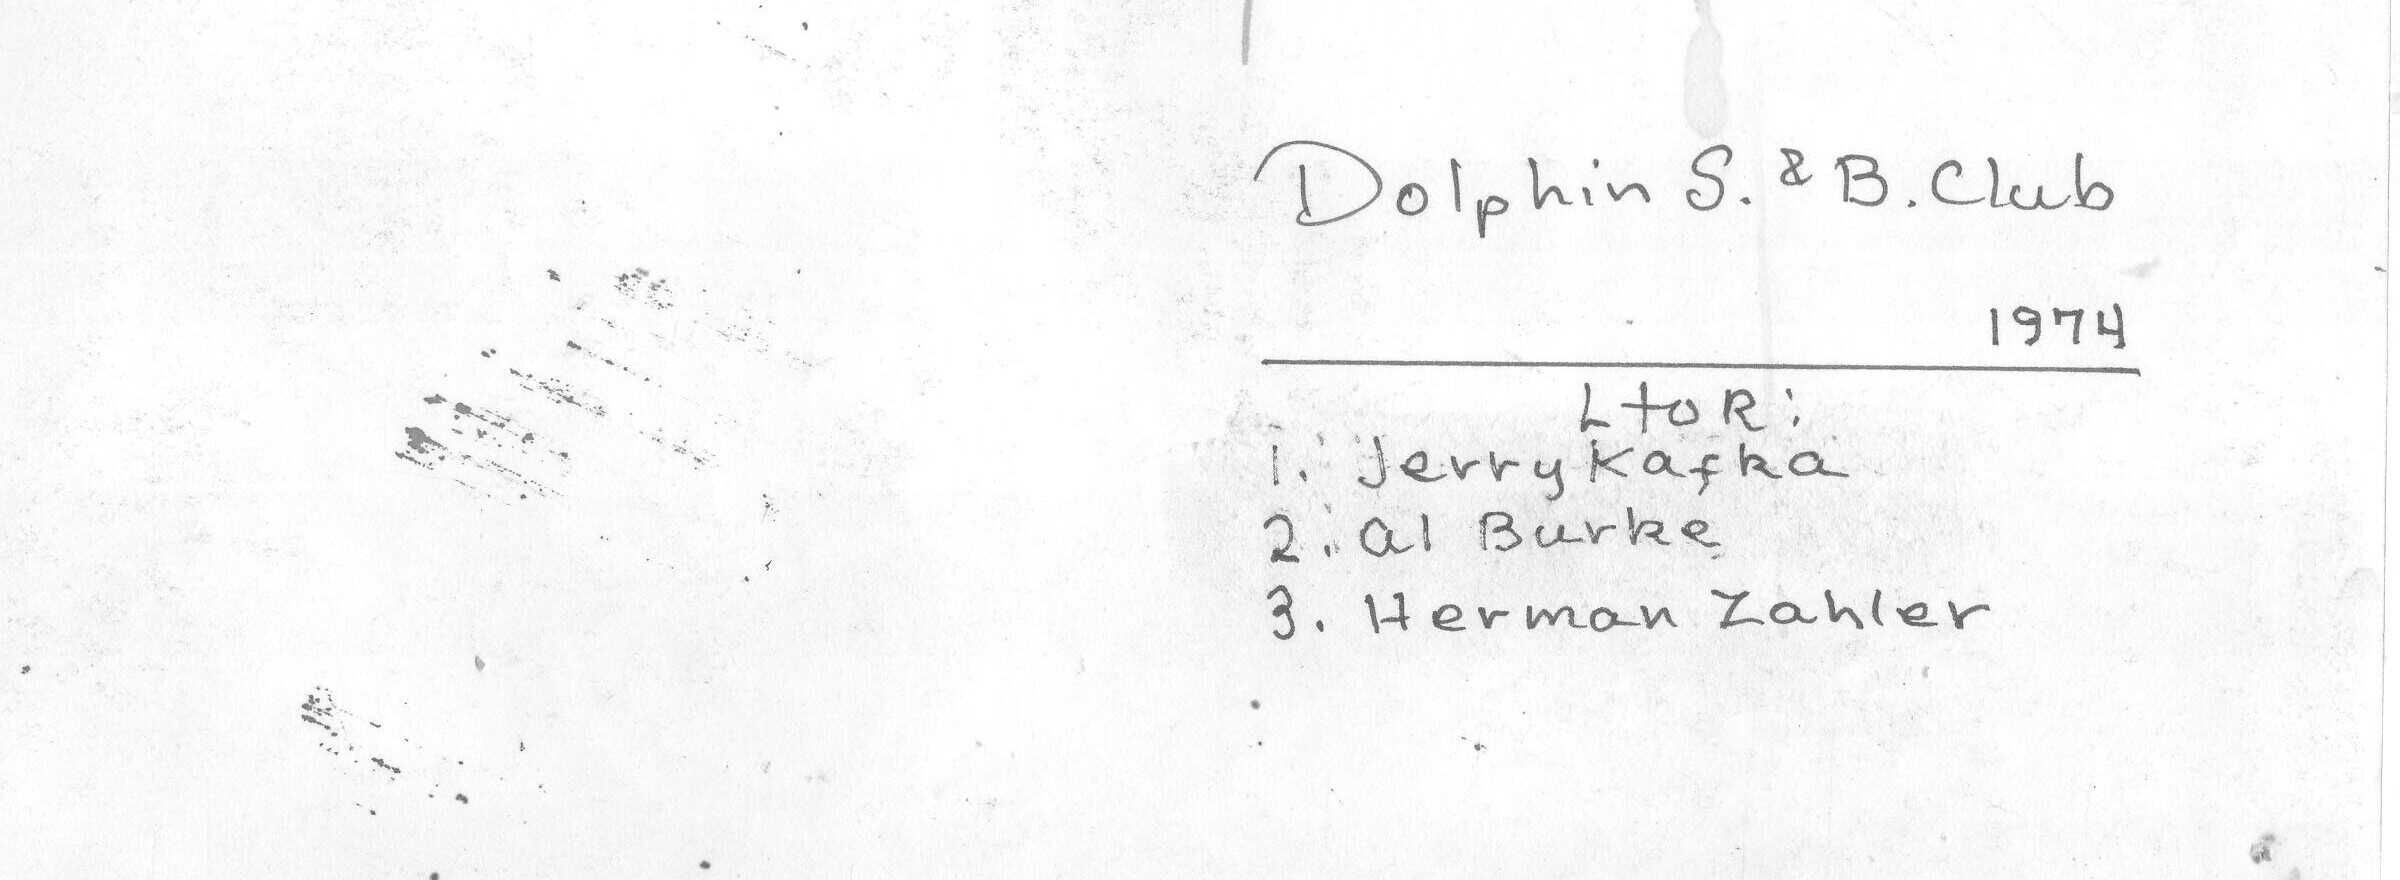 Dolphin S. & B. Club
1974
L to R:
1. Jerry Kafka
2. al Burke
3. Herman Zahler